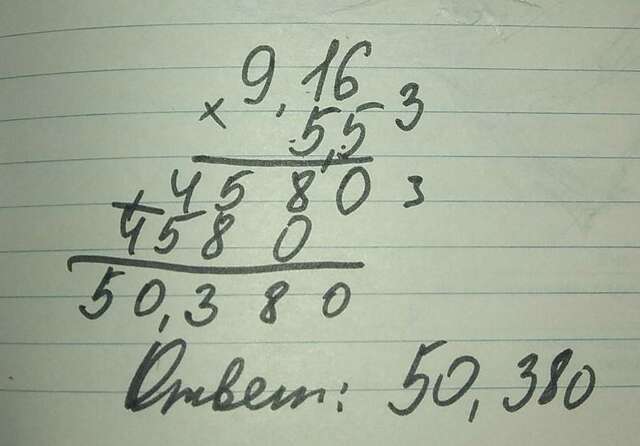 9,16
× 5,5 3
+ 4580 3
4580
50,380
Ответ: 50,380